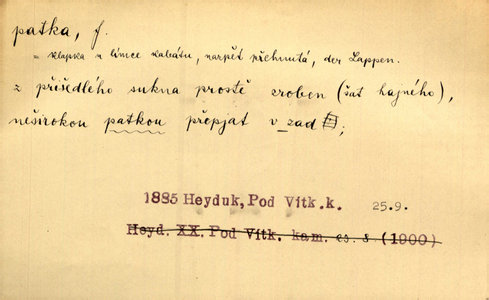 patka, f.
= klapka u límce kabátu, napět přehnutá, der Lappen.
z přišedlého sukna prostě zroben (šat hajného),
neširokou patkou přepjat v_zad;
1885 Heyduk, Pod Vítk.k. 25.9.
Heyd. XX. Pod Vítk. kam. cs. 8 (1900)